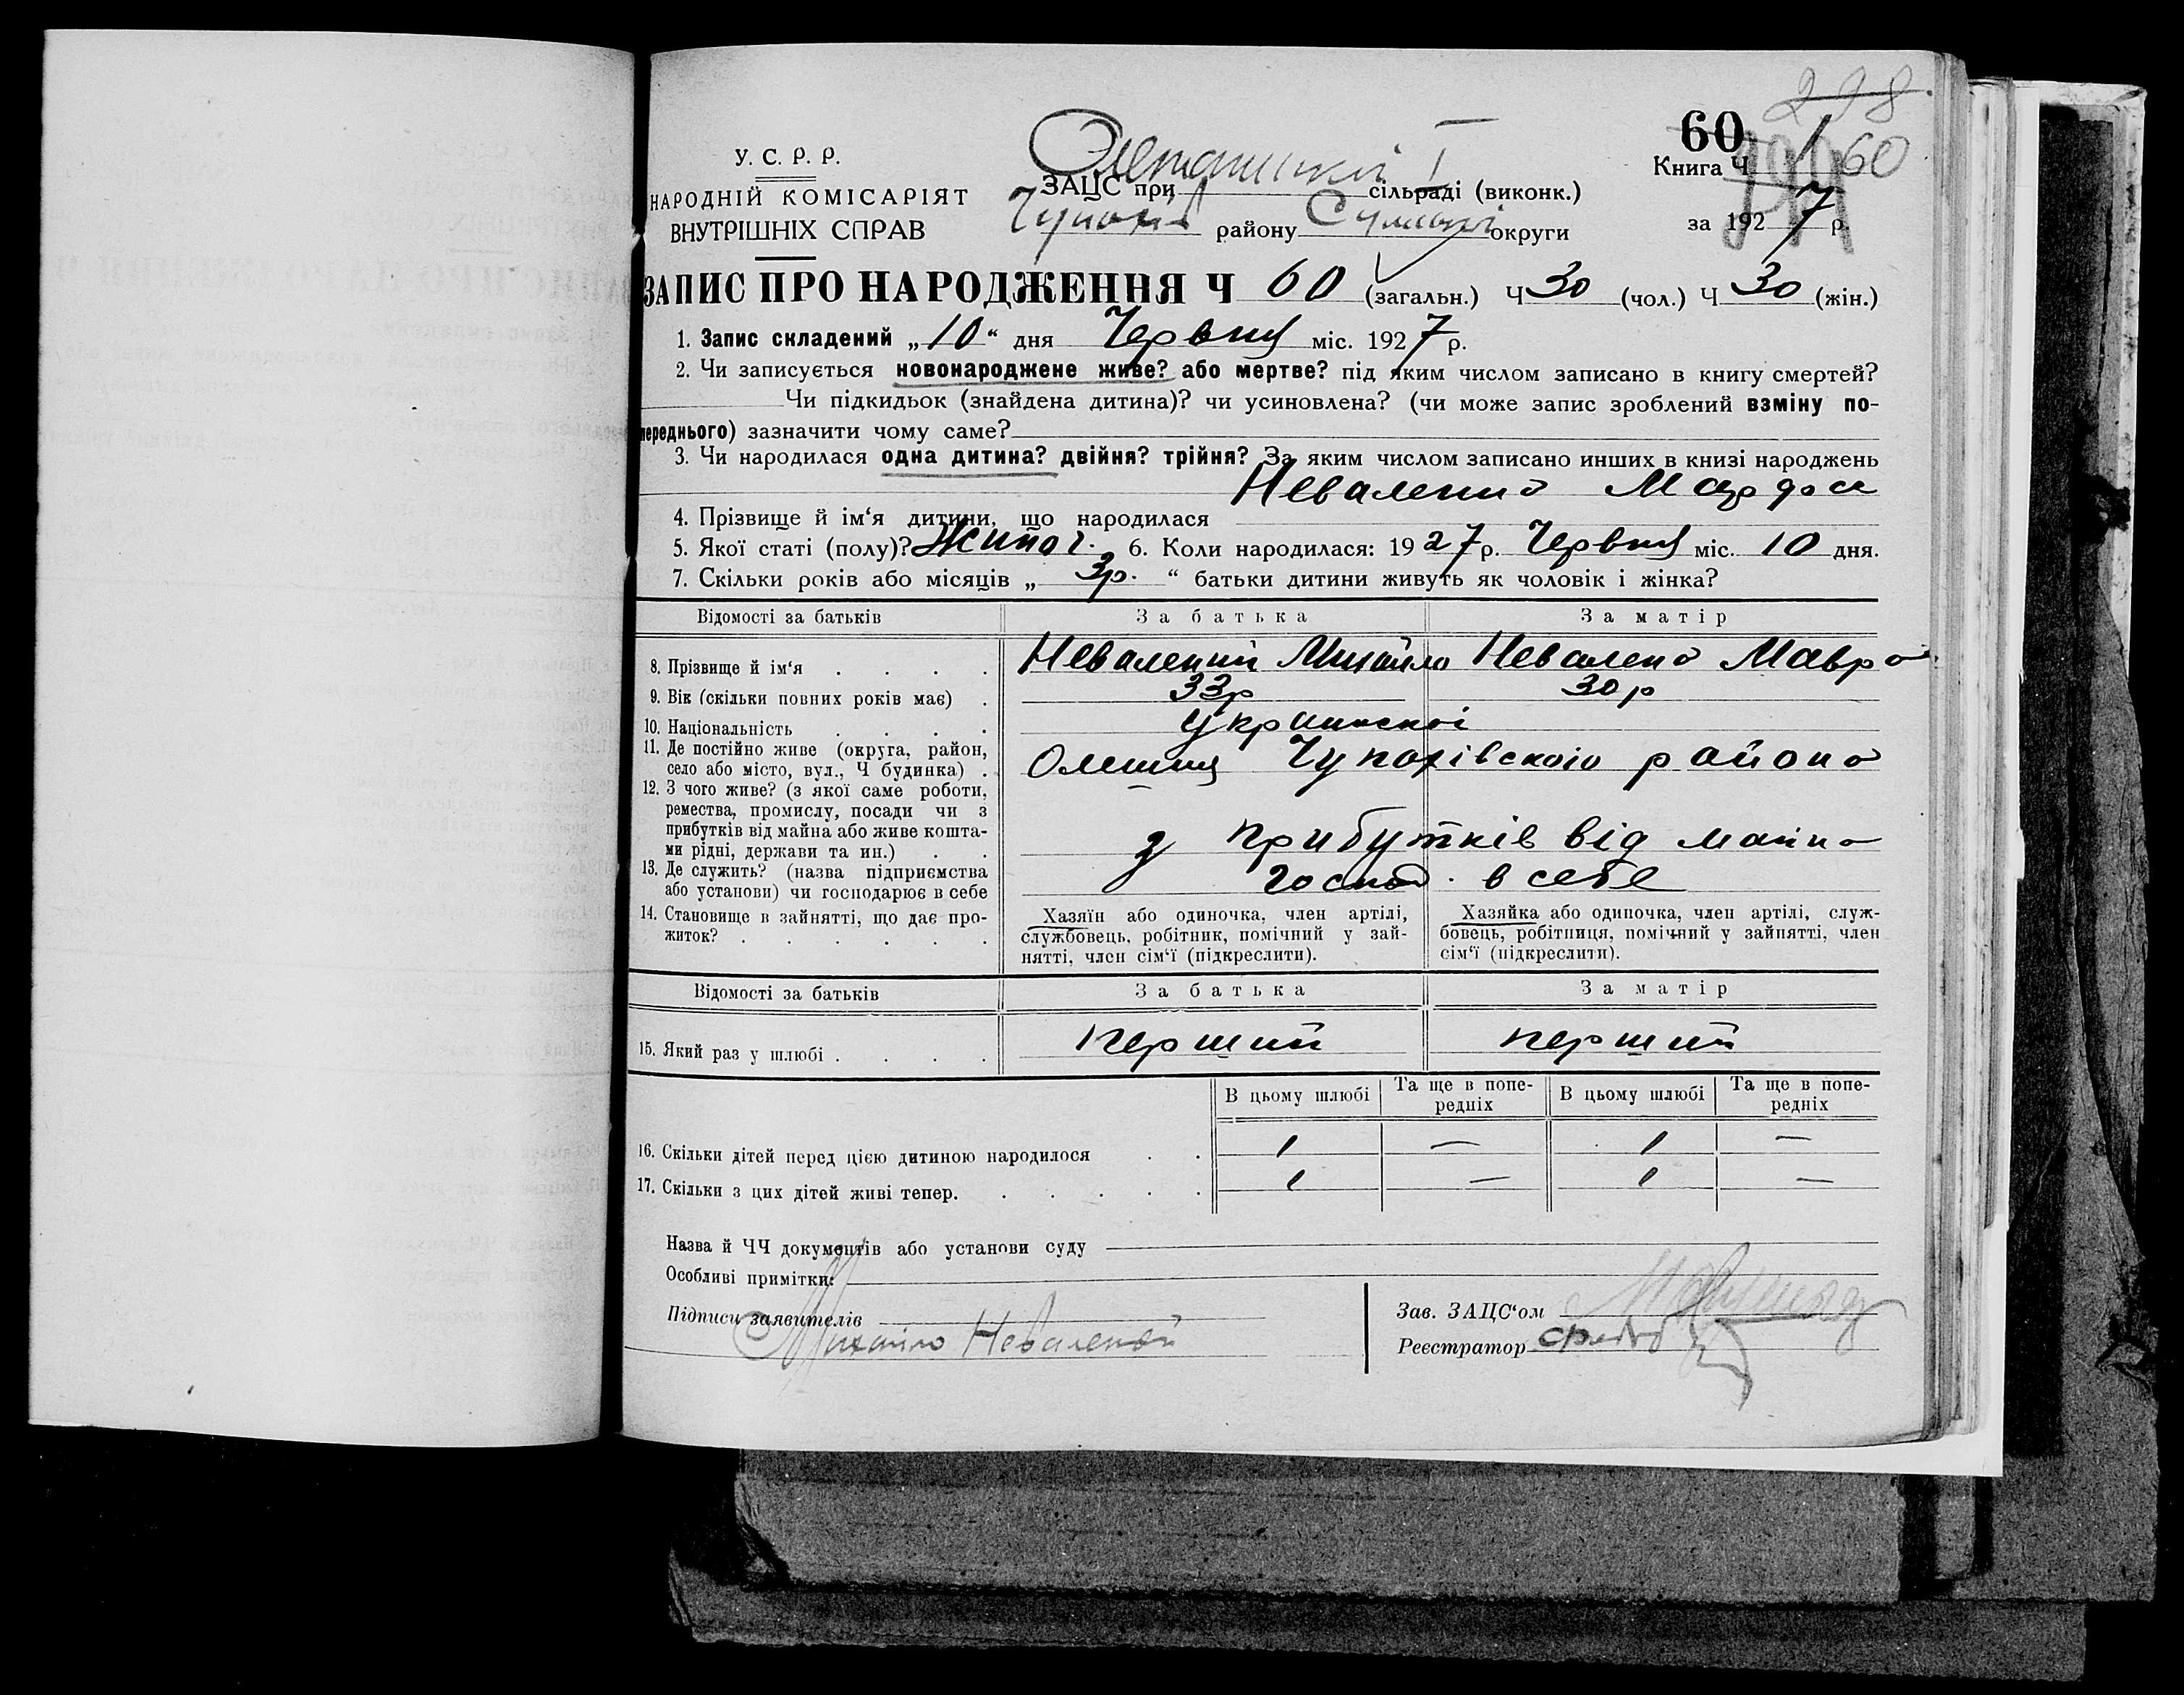 298
60
Книга Ч 1 60
за 1927 р.
У. С. Р. Р.
НАРОДНІЙ КОМІСАРІЯТ
ВНУТРІШНІХ СПРАВ
ЗАЦС при І сільраді (виконк.)
району Сумської округи
ЗАПИС ПРО НАРОДЖЕННЯ Ч 60 (загальн.) Ч 30 (чол.) Ч 30 (жін.)
1. Запис складений „10“ дня Червня міс. 1927 р.
2. Чи записується новонароджене живе? або мертве? під яким числом записано в книгу смертей?
Чи підкидьок (знайдена дитина)? чи усиновлена? (чи може запис зроблений взміну по-
переднього) зазначити чому саме?
3. Чи народилася одна дитина? двійня? трійня? За яким числом записано инших в книзі народжень
Невалена
4. Прізвище й ім‘я дитини, що народилася
5. Якої статі (полу)? Жіноч. 6. Коли народилася: 1927 р. Червня міс. 10 дня.
7. Скільки років або місяців „ 3р. “ батьки дитини живуть як чоловік і жінка?
Відомості за батьків За батька За матір
8. Прізвище й ім‘я . . . . Невалений Михайло Невалена Мавра
9. Вік (скільки повних років має) . 33р 30р
10. Національність . . . . Украинскої
11. Де постійно живе (округа, район,
село або місто, вул., Ч будинка) . Олешня Чупахівского района
12. З чого живе? (з якої саме роботи,
ремества, промислу, посади чи з
прибутків від майна або живе кошта-
ми рідні, держави та ин.) . . з прибутків від майна
13. Де служить? (назва підприємства
або установи) чи господарює в себе Господ. в себе
14. Становище в зайнятті, що дає про-
житок? . . . . . .
Хазяїн або одиночка, член артілі,
службовець, робітник, помічний у зай-
нятті, член сім‘ї (підкреслити).
Хазяйка або одиночка, член артілі, служ-
бовець, робітниця, помічний у зайнятті, член
сім‘ї (підкреслити).
Відомості за батьків За батька За матір
15. Який раз у шлюбі . . . . перший перший
В цьому шлюбі Та ще в попе-
редніх В цьому шлюбі Та ще в попе-
редніх
16. Скільки дітей перед цією дитиною народилося . . 1 — 1 —
17. Скільки з цих дітей живі тепер. . . . . . 1 — 1 —
Назва й ЧЧ документів або установи суду
Особливі примітки:
Підписи заявителів
Михайло Невалений
Зав. ЗАЦС‘ом
Реєстратор